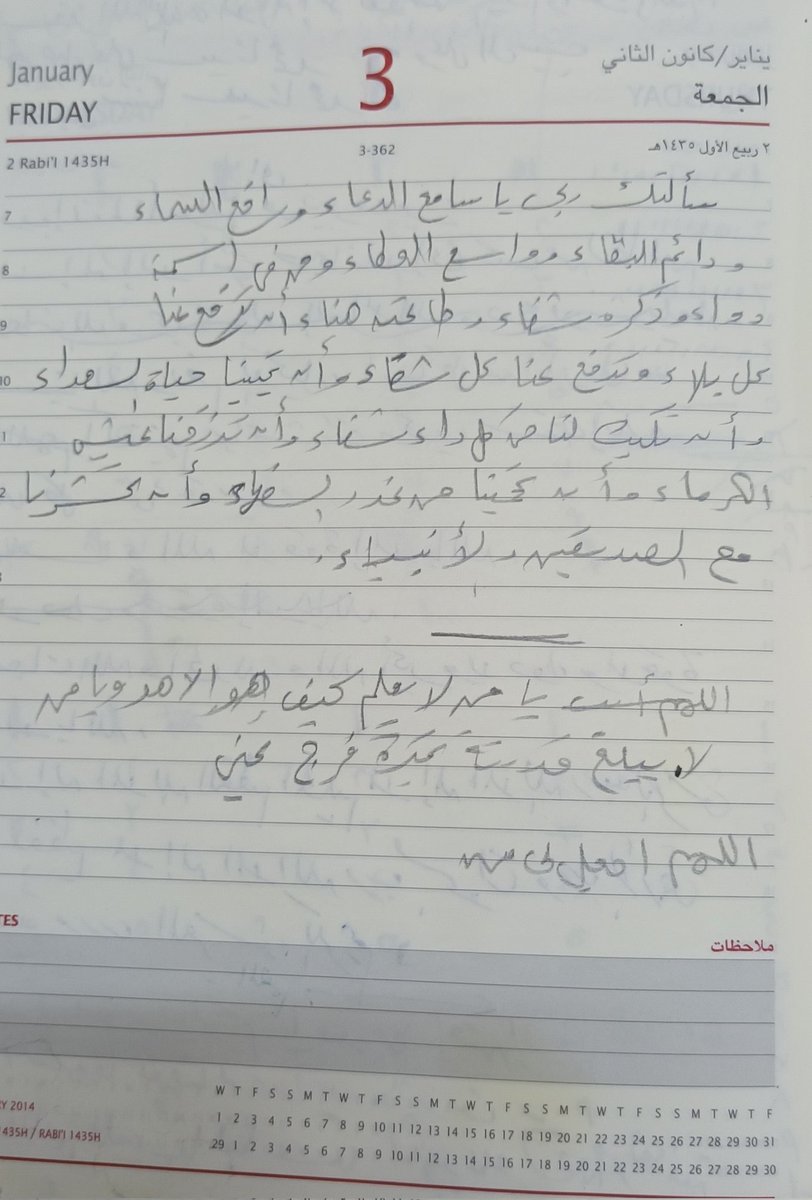 January
FRIDAY
3
يناير/كانون الثاني
الجمعة
2 Rabi'l 1435H
3-362
٢ ربيع الأول ١٤٣٥هـ
7 سألتك ربي يا سامع الدعاء ورافع السماء
8 ودائم البقاء وواسع العطاء ومن في اسمه
9 دواء وذكره شفاء وطاعته هناء أن ترفع عنا
10 كل بلاء وتدفع عنا كل شقاء وأن تحيينا حياة السعداء
1 وأن تكتب لنا من كل داء شفاء وأن ترزقنا عيش
2 الكرماء وأن تحمينا من غدر وأن تحشرنا
مع الصديقين والأنبياء.
اللهم يا من لا يعلم كيف هو الا هو ويا من
لا يبلغ قدرته غيره فرج عني
اللهم اجعل لي من
TES
ملاحظات
RY 2014
1435H / RABI'I 1435H
W T F S S M T W T F S S M T W T F S S M T W T F S S M T W T F
1 2 3 4 5 6 7 8 9 10 11 12 13 14 15 16 17 18 19 20 21 22 23 24 25 26 27 28 29 30 31
29 1 2 3 4 5 6 7 8 9 10 11 12 13 14 15 16 17 18 19 20 21 22 23 24 25 26 27 28 29 30